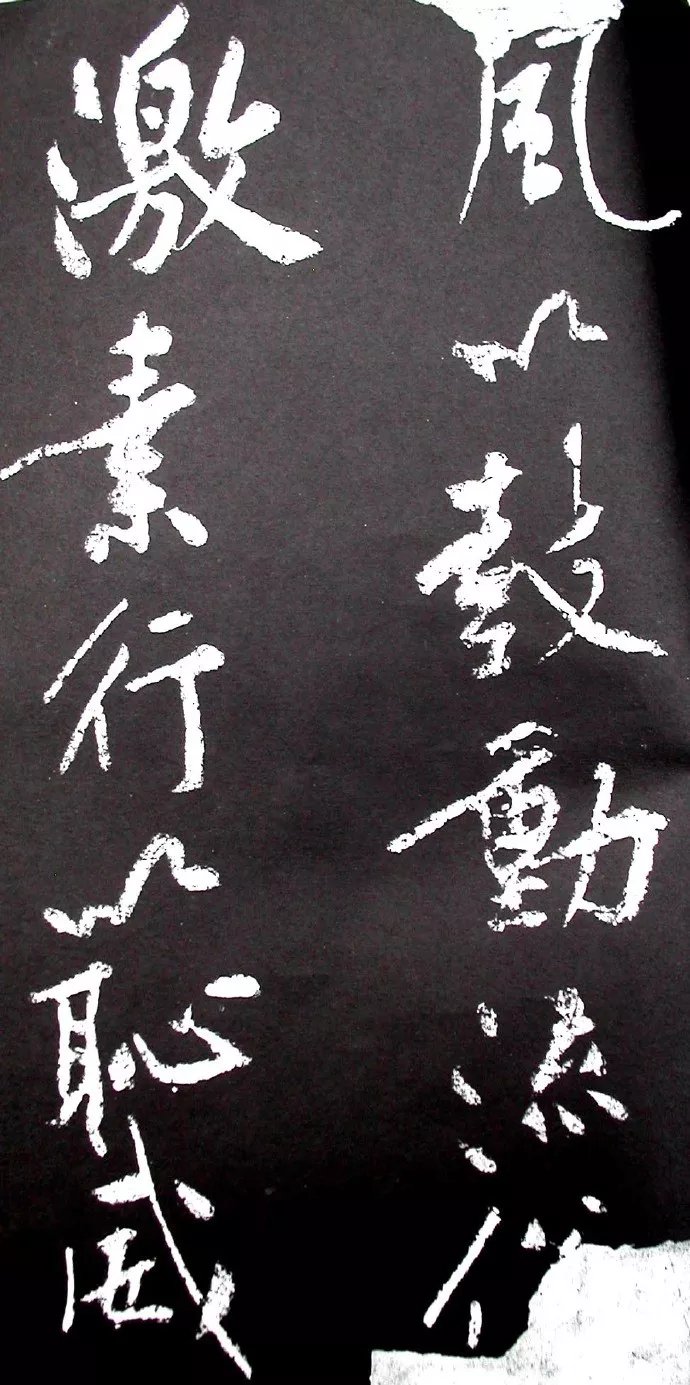 風以鼓動流
激素行以恥威